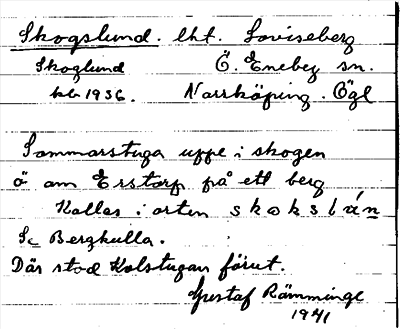 Skogslund. lht. Loviseberg
Skoglund Ö. Eneby sn.
kb 1936. Norrköping. Ögl
Sommarstuga uppe i skogen
ö om Erstorp på ett berg
Kallas i orten skokslún
Se Bergkulla.
Där stod Kolstugan förut.
Gustaf Rämminge
1941